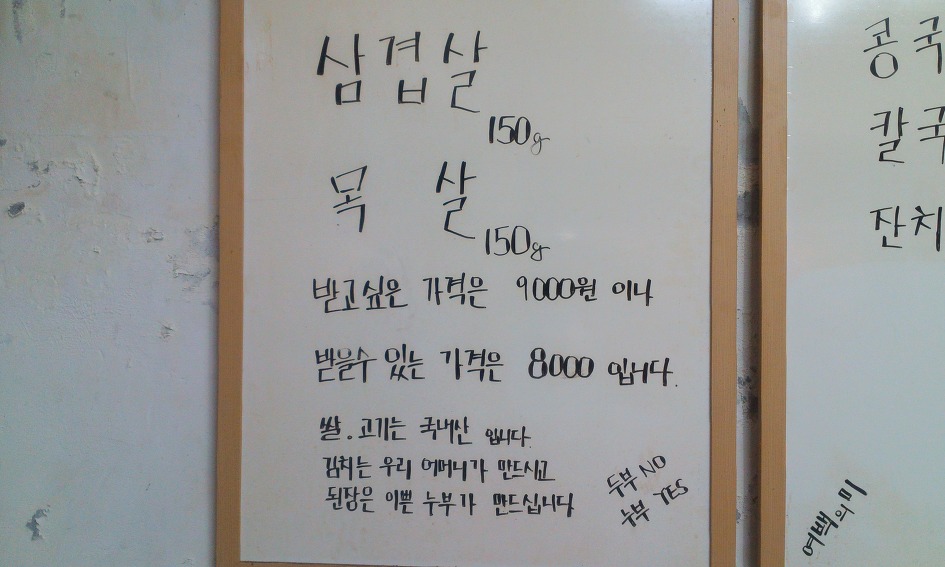 삼겹살
150g
목 살
150g
받고싶은 가격은 9000원 이나
받을수 있는 가격은 8000 입니다.
쌀.고기는 국내산 입니다.
김치는 우리 어머니가 만드시고
된장은 이쁜 누부가 만드십니다
두부 NO
누부 YES
콩국
칼국
잔치
여백의 미